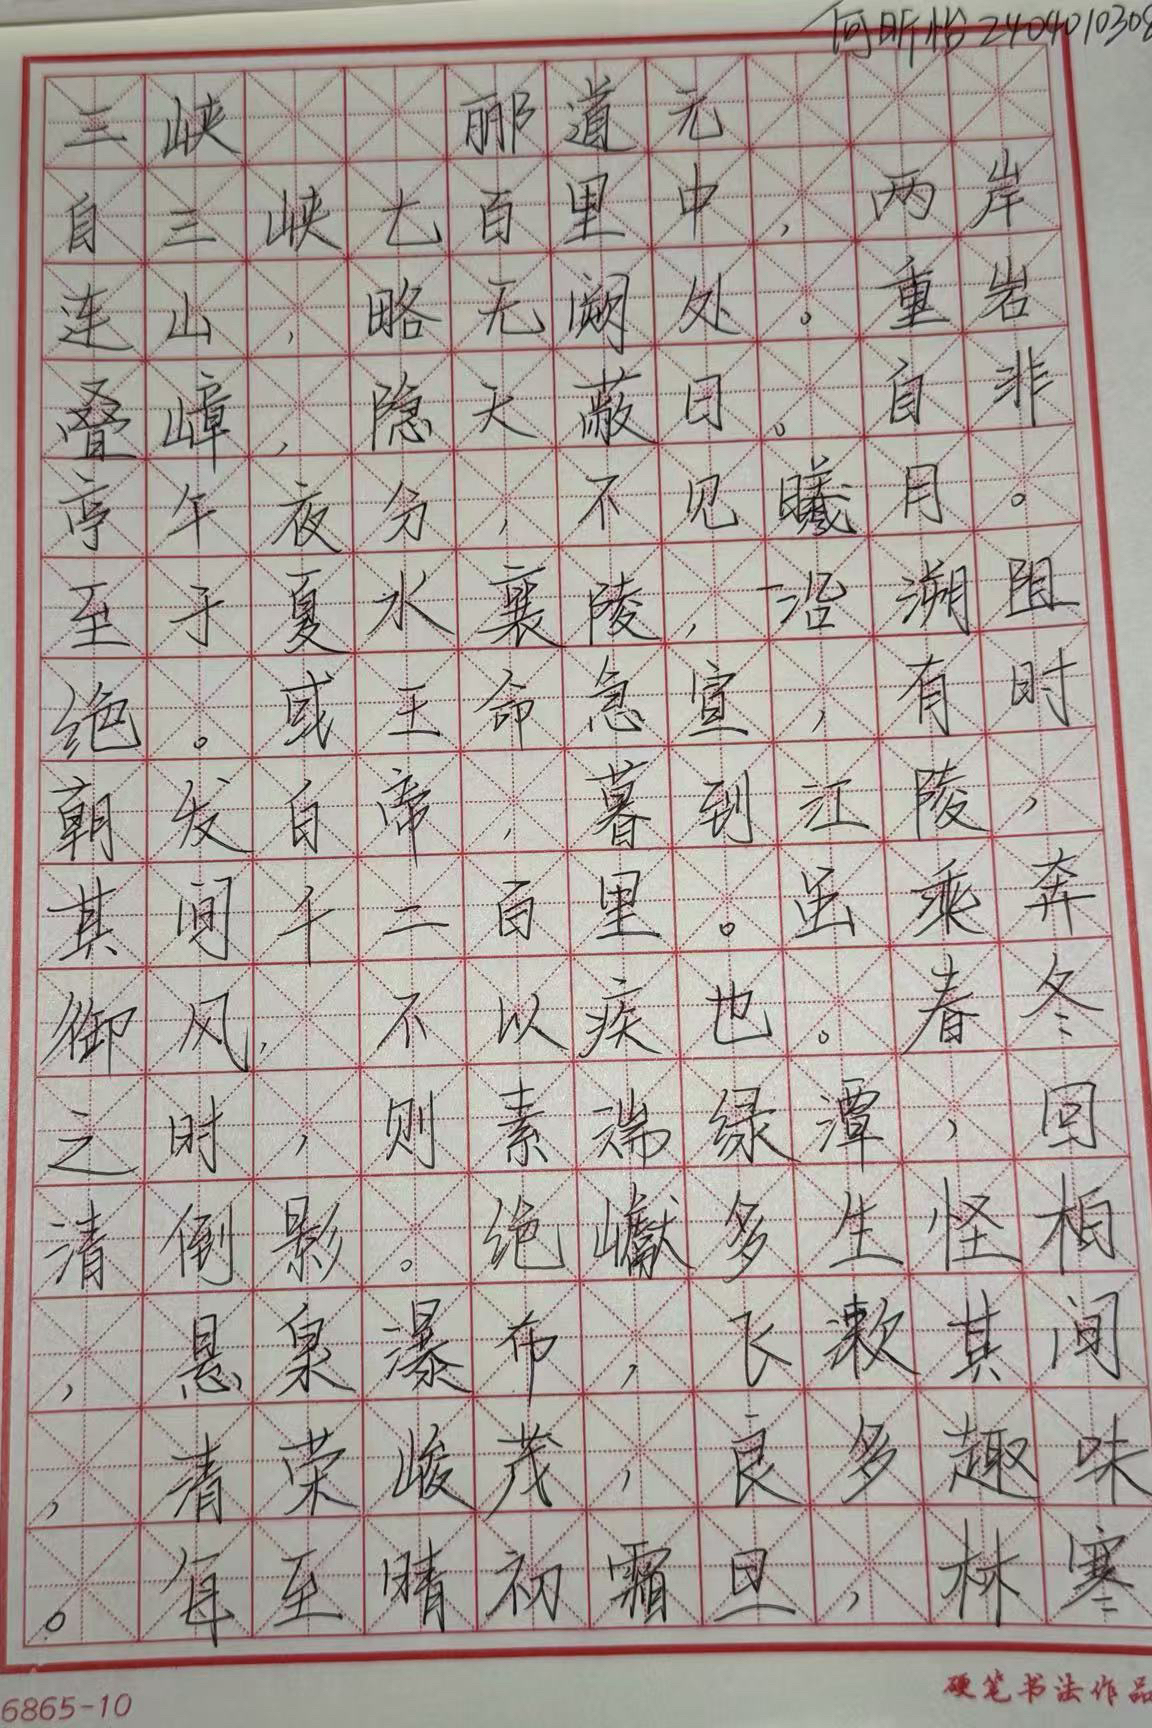 何昕怡2404010308
三峡 郦道元
自三峡七百里中，两岸
连山，略无阙处。重岩
叠嶂，隐天蔽日。自非
亭午夜分，不见曦月。
至于夏水襄陵，沿溯阻
绝。或王命急宣，有时
朝发白帝，暮到江陵，
其间千二百里。虽乘奔
御风，不以疾也。春冬
之时，则素湍绿潭，回
清倒影。绝巘多生怪柏
，悬泉瀑布，飞漱其间
，清荣峻茂，良多趣味
。每至晴初霜旦，林寒
6865-10
硬笔书法作品